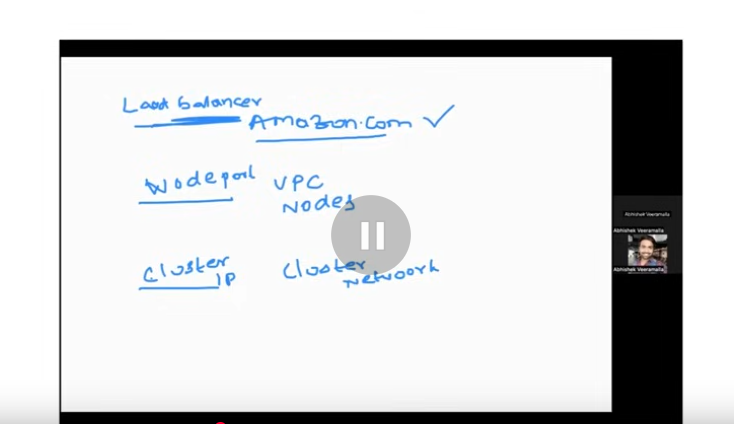 Load balancer
Amazon.com ✓
Nodeport VPC
Nodes
Cluster Cluster
IP Network
Abhishek Veeramalla
Abhishek Veeramalla
Abhishek Veeramalla